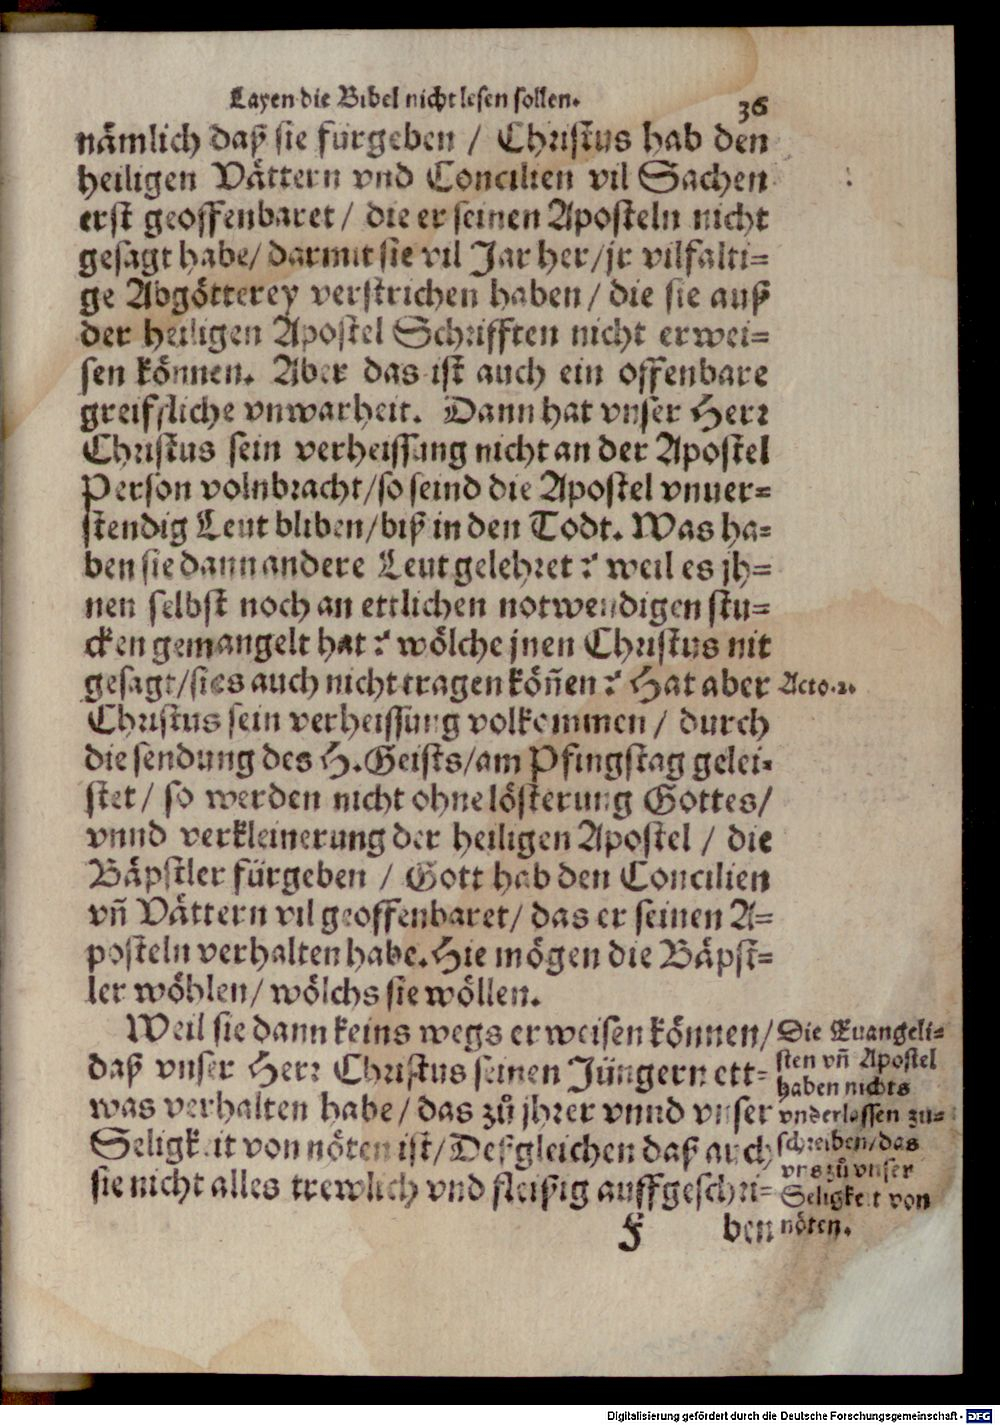 Layen die Bibel nicht lesen sollen. 36
nämlich daß sie fürgeben / Christus hab den
heiligen Vättern vnd Concilien vil Sachen
erst geoffenbaret / die er seinen Aposteln nicht
gesagt habe / darmit sie vil Jar her / jr vilfalti=
ge Abgötterey verstrichen haben / die sie auß
der heiligen Apostel Schrifften nicht erwei=
sen können. Aber das ist auch ein offenbare
greiffliche vnwarheit. Dann hat vnser Herr
Christus sein verheissung nicht an der Apostel
Person volnbracht / so seind die Apostel vnuer=
stendig Leut bliben / biß in den Todt. Was ha=
ben sie dann andere Leut gelehret? weil es jh=
nen selbst noch an ettlichen notwendigen stu=
cken gemangelt hat? wölche jnen Christus nit
gesagt / sies auch nicht tragen köñen? Hat aber
Acto.2.
Christus sein verheissung volkommen / durch
die sendung des H. Geists / am Pfingstag gelei=
stet / so werden nicht ohne lösterung Gottes /
vnnd verkleinerung der heiligen Apostel / die
Bäpstler fürgeben / Gott hab den Concilien
vñ Vättern vil geoffenbaret / das er seinen A=
posteln verhalten habe. Hie mögen die Bäpst=
ler wöhlen / wölchs sie wöllen.
Weil sie dann keins wegs erweisen können /
daß vnser Herr Christus seinen Jüngern ett=
was verhalten habe / das zů jhrer vnnd vnser
Seligkeit von nöten ist / Deßgleichen daß auch
sie nicht alles trewlich vnd fleißig auffgeschri=
Die Euangeli=
sten vñ Apostel
haben nichts
vnderlassen zu=
schreiben / das
vns zů vnser
Seligkeit von
nöten.
F ben
Digitalisierung gefördert durch die Deutsche Forschungsgemeinschaft - DFG